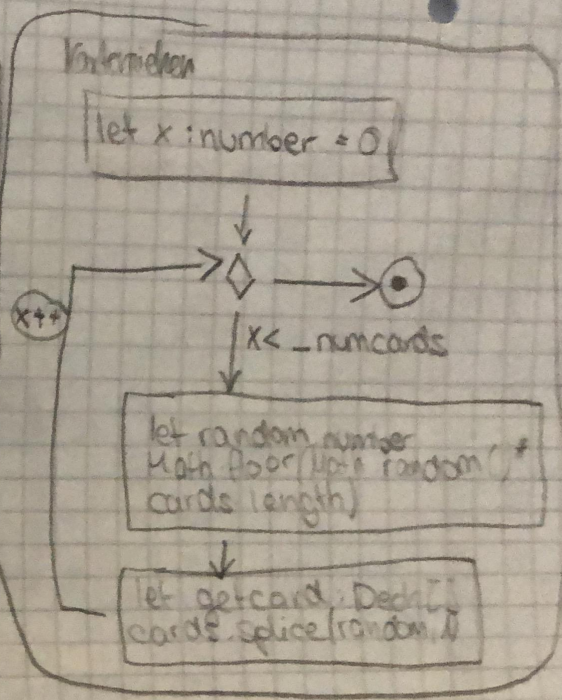 let x : number = 0
x++
x < _numcards
let random number
Math floor(Math random() *
cards length)
let getcard : Deck[]
cards.splice(random, 1)